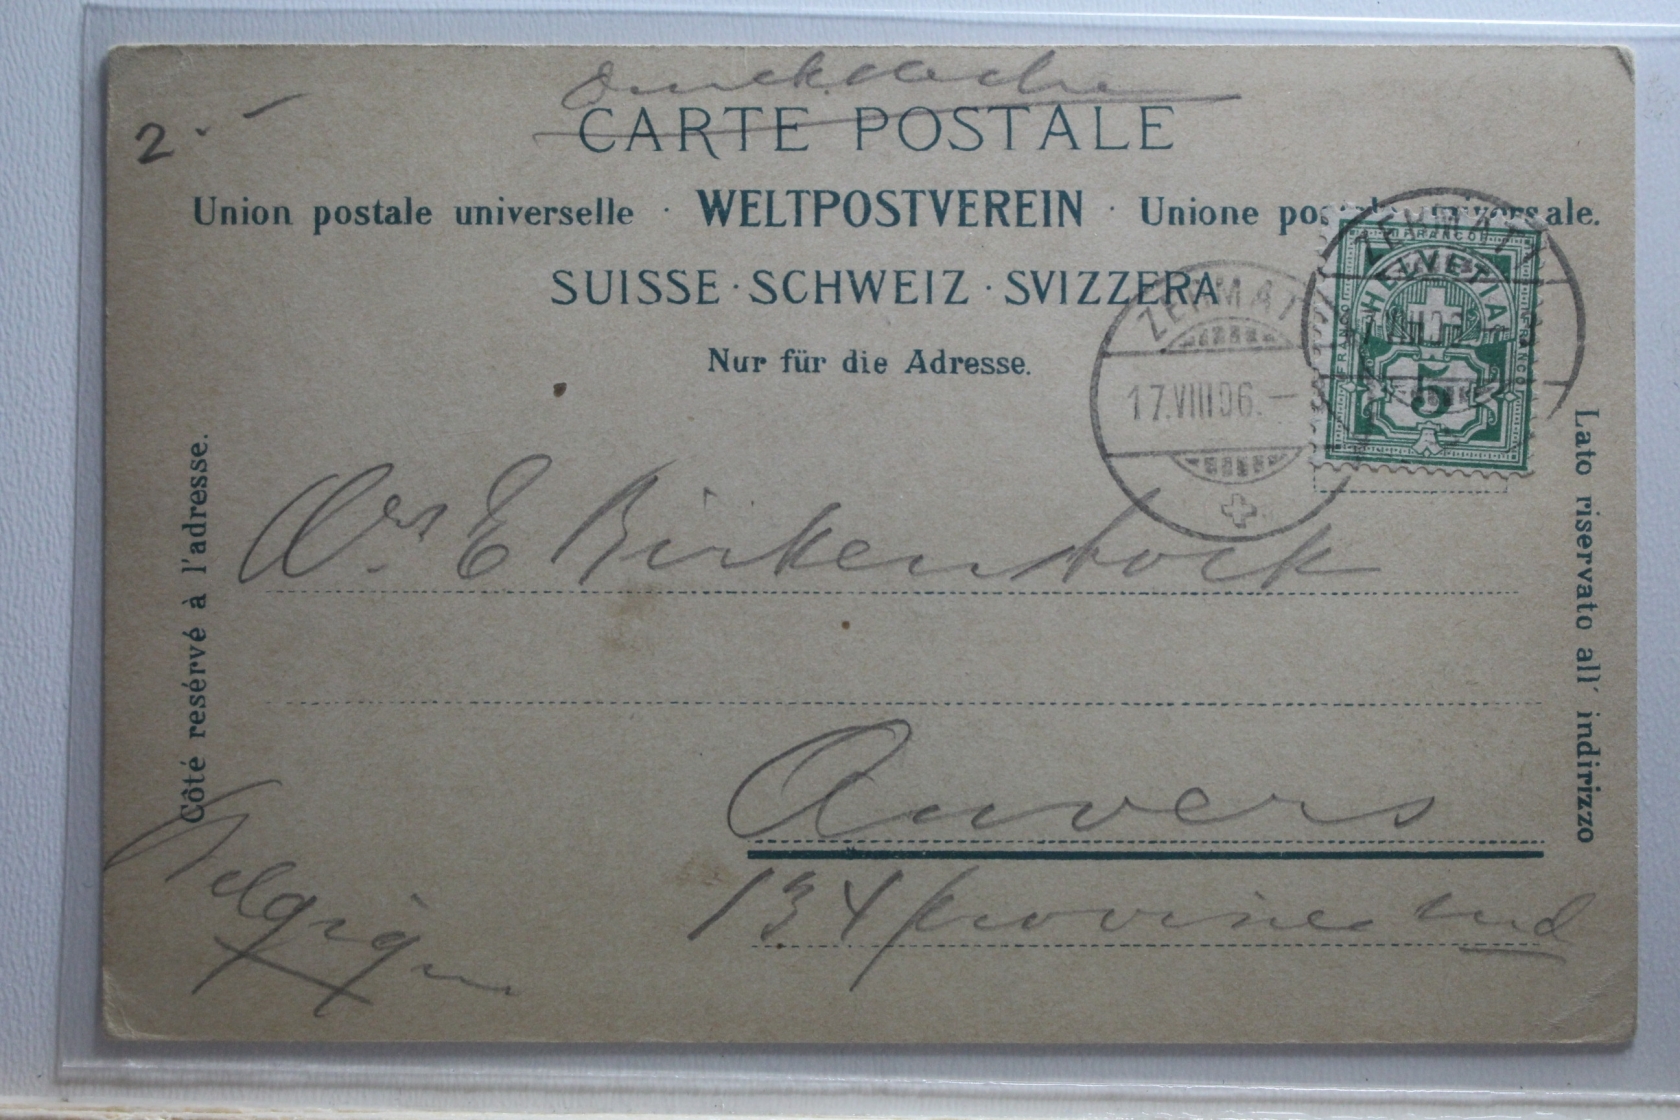 Drucksache
2.-
CARTE POSTALE
Union postale universelle · WELTPOSTVEREIN · Unione postale universale.
SUISSE · SCHWEIZ · SVIZZERA
Nur für die Adresse.
FRANCO
HELVETIA
FRANCO
FRANCO
5
ZERMATT
17.VIII.06.-
ZERMATT
17.VIII.06
Côté resérvé à l'adresse.
Lato riservato all' indirizzo
E Birkenstock
Anvers
134 province
Belgique